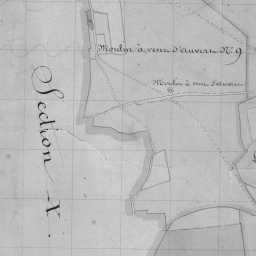 Moulin à vent d'auvers N.º 9
Moulin à vent
Section X.